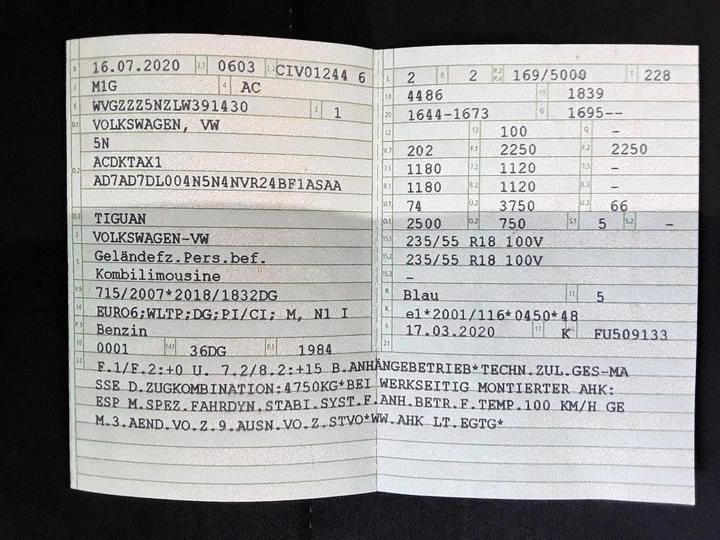 B 16.07.2020 2.1 0603 2.2 CIV01244 6
J M1G 4 AC
E WVGZZZ5NZLW391430 3 1
D.1 VOLKSWAGEN, VW
5N
D.2 ACDKTAX1
AD7AD7DL004N5N4NVR24BF1ASAA
D.3 TIGUAN
2 VOLKSWAGEN-VW
5 Geländefz.Pers.bef.
Kombilimousine
V.9 715/2007*2018/1832DG
14 EURO6;WLTP;DG;PI/CI; M, N1 I
P.3 Benzin
10 0001 14.1 36DG P.1 1984
L 2 9 2 P.2 P.4 169/5000 T 228
18 4486 19 1839
20 1644-1673 G 1695--
12 13 100 Q -
V.7 202 F.1 2250 F.2 2250
7.1 1180 7.2 1120 7.3 -
8.1 1180 8.2 1120 8.3 -
U.1 74 U.2 3750 U.3 66
O.1 2500 O.2 750 S.1 5 S.2 -
15.1 235/55 R18 100V
15.2 235/55 R18 100V
15.3 -
R Blau 11 5
K e1*2001/116*0450*48
6 17.03.2020 17 K 16 FU509133
21
22 F.1/F.2:+0 U. 7.2/8.2:+15 B.ANHÄNGEBETRIEB*TECHN.ZUL.GES-MA
SSE D.ZUGKOMBINATION:4750KG*BEI WERKSEITIG MONTIERTER AHK:
ESP M.SPEZ.FAHRDYN.STABI.SYST.F.ANH.BETR.F.TEMP.100 KM/H GE
M.3.AEND.VO.Z.9.AUSN.VO.Z.STVO*WW.AHK LT.EGTG*